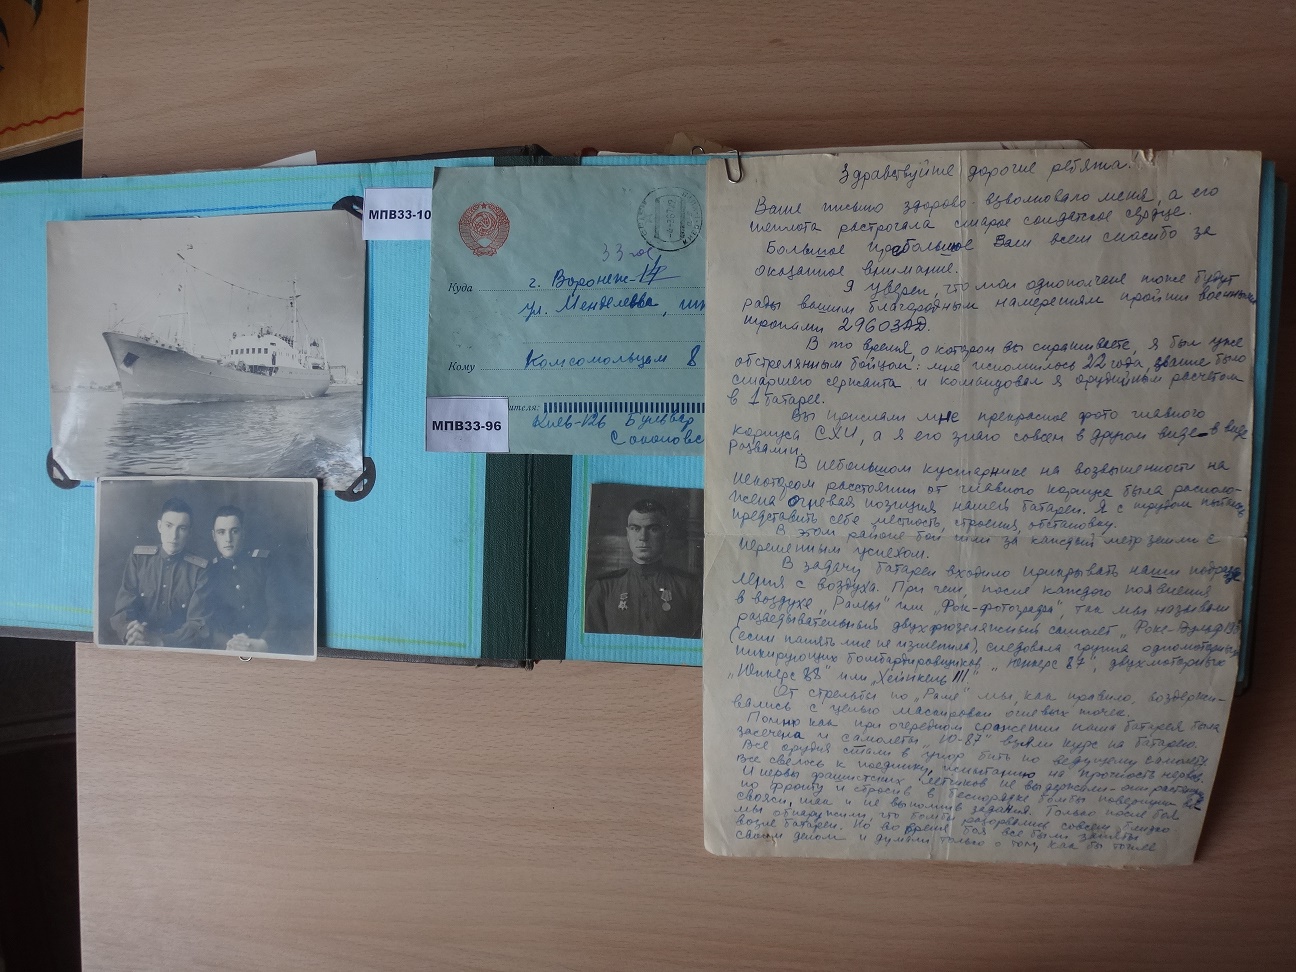 МПВ33-10
33
Куда
г. Воронеж-14
ул. Менделеева,
Кому
Комсомольцам 8
МПВ33-96
Киев-126 Бульвар
Здравствуйте дорогие ребята!
Ваше письмо здорово взволновало меня, а его
теплота растрогала старое солдатское сердце.
Большое пребольшое Вам всем спасибо за
оказанное внимание.
Я уверен, что мои однополчане тоже будут
рады вашим благородным намерениям пройти военными
тропами 2960ЗАД.
В то время, о котором вы спрашиваете, я был уже
обстрелянным бойцом: мне исполнилось 22 года, звание было
старшего сержанта и командовал я орудийным расчетом
в 1 батарее.
Вы прислали мне прекрасное фото главного
корпуса СХИ, а я его знаю совсем в другом виде – в виде
развалин.
В небольшом кустарнике на возвышенности на
некотором расстоянии от главного корпуса была располо-
жена огневая позиция нашей батареи. Я с трудом пытаюсь
представить себе местность, строения, обстановку.
В этом районе бои шли за каждый метр земли с
переменным успехом.
В задачу батареи входило прикрывать наши подразде-
ления с воздуха. При чем, после каждого появления
в воздухе „Рамы" или „Фок-фотографа", так мы называли
разведывательный двухфюзеляжный самолет „Фоке-Вульф 189"
(если память мне не изменила), следовала группа одномоторных
пикирующих бомбардировщиков „Юнкерс 87", двухмоторных
„Юнкерс 88" или „Хейнкель 111"
От стрельбы по „Раме" мы, как правило, воздержи-
вались с целью маскировки огневых точек.
Помню как при очередном сражении наша батарея была
засечена и самолеты „Ю-87" взяли курс на батарею.
Все орудия стали в упор бить по ведущему самолету.
Все свелось к поединку, испытанию на прочность нервов.
И нервы фашистских летчиков не выдержали – они
по фронту и сбросив в беспорядке бомбы повернули
свояси, так и не выполнив задания. Только после боя
мы обнаружили, что бомбы разорвались совсем близко
возле батареи. Но во время боя все были заняты
своим делом и думали только о том, как бы точнее